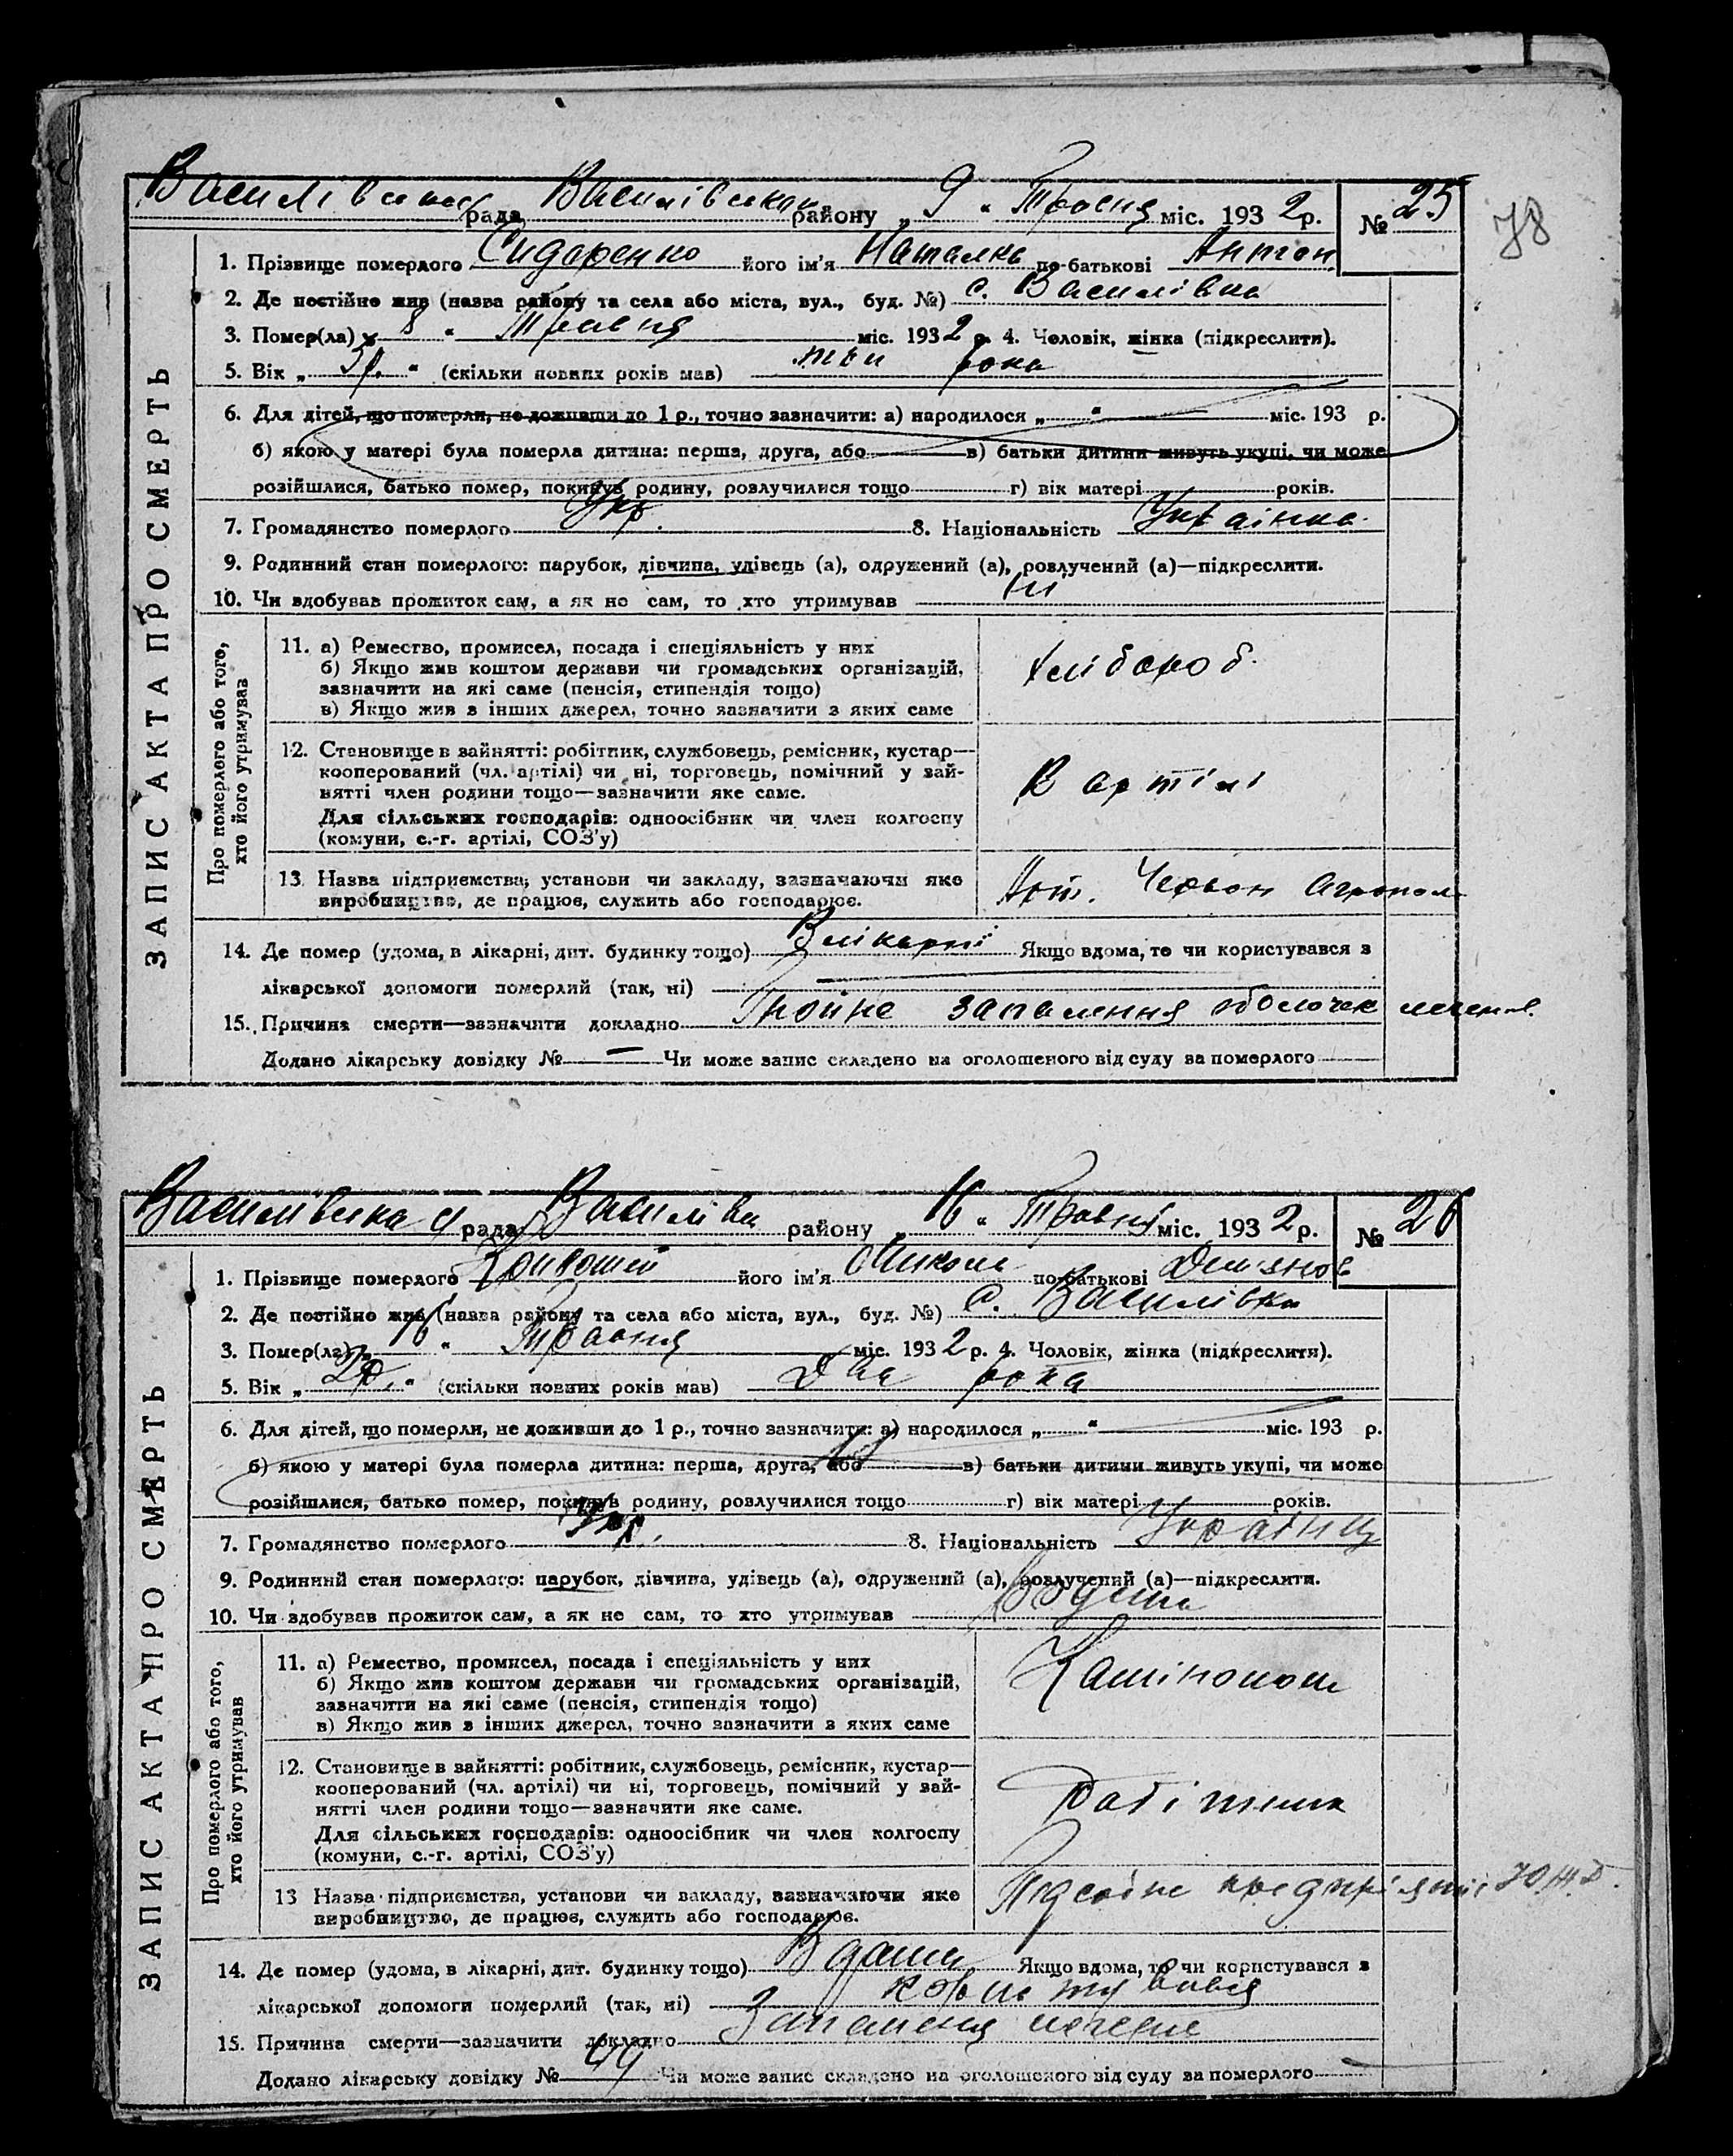 Василівська рада Василівська району „ 9 “ Травня міс. 193 2 р. № 25
78
1. Прізвище померлого Сидоренко його ім'я Наталка по-батькові Антон.
2. Де постійно жив (назва району та села або міста, вул., буд. №) с. Василівка
3. Помер(ла) „ 8 “ Травня міс. 193 2 р. 4. Чоловік, жінка (підкреслити).
5. Вік „ 3 р. “ (скільки повних років мав) три рока
6. Для дітей, що померли, не доживши до 1 р., точно зазначити: а) народилося „ “ міс. 193 р.
б) якою у матері була померла дитина: перша, друга, або в) батьки дитини живуть укупі, чи може
розійшлися, батько помер, покинув родину, розлучилися тощо г) вік матері років.
7. Громадянство померлого Укр. 8. Національність Українка
9. Родинний стан померлого: парубок, дівчина, удівець (а), одружений (а), розлучений (а)—підкреслити.
10. Чи здобував прожиток сам, а як не сам, то хто утримував ні
ЗАПИС АКТА ПРО СМЕРТЬ
Про померлого або того,
хто його утримував
11. а) Ремество, промисел, посада і спеціяльність у них
б) Якщо жив коштом держави чи громадських організацій,
зазначити на які саме (пенсія, стипендія тощо)
в) Якщо жив з інших джерел, точно зазначити з яких саме
хлібороб.
12. Становище в зайнятті: робітник, службовець, ремісник, кустар—
кооперований (чл. артілі) чи ні, торговець, помічний у зай-
нятті член родини тощо—зазначити яке саме.
Для сільських господарів: одноосібник чи член колгоспу
(комуни, с.-г. артілі, СОЗ'у)
В артілі
13 Назва підприємства, установи чи закладу, зазначаючи яке
виробництво, де працює, служить або господарює.
Арт. Червон
14. Де помер (удома, в лікарні, дит. будинку тощо) В лікарні Якщо вдома, то чи користувався з
лікарської допомоги померлий (так, ні) —
15. Причина смерти—зазначити докладно Гнойне запалення оболочек
Додано лікарську довідку № — Чи може запис складено на оголошеного від суду за померлого
Василівська рада Василівк району 16 “ Травня міс. 193 2 р. № 26
1. Прізвище померлого Кривошей його ім'я Микола по-батькові
2. Де постійно жив (назва району та села або міста, вул., буд. №) с. Василівка
3. Помер(ла) „ 16 “ Травня міс. 193 2 р. 4. Чоловік, жінка (підкреслити).
5. Вік „ 2 р. “ (скільки повних років мав) Два рока
6. Для дітей, що померли, не доживши до 1 р., точно зазначити: а) народилося „ “ міс. 193 р.
б) якою у матері була померла дитина: перша, друга, або в) батьки дитини живуть укупі, чи може
розійшлися, батько помер, покинув родину, розлучилися тощо г) вік матері років.
7. Громадянство померлого Укр. 8. Національність Українц
9. Родинний стан померлого: парубок, дівчина, удівець (а), одружений (а), розлучений (а)—підкреслити.
10. Чи здобував прожиток сам, а як не сам, то хто утримував
ЗАПИС АКТА ПРО СМЕРТЬ
Про померлого або того,
хто його утримував
11. а) Ремество, промисел, посада і спеціяльність у них
б) Якщо жив коштом держави чи громадських організацій,
зазначити на які саме (пенсія, стипендія тощо)
в) Якщо жив з інших джерел, точно зазначити з яких саме
12. Становище в зайнятті: робітник, службовець, ремісник, кустар—
кооперований (чл. артілі) чи ні, торговець, помічний у зай-
нятті член родини тощо—зазначити яке саме.
Для сільських господарів: одноосібник чи член колгоспу
(комуни, с.-г. артілі, СОЗ'у)
Робітник
13 Назва підприємства, установи чи закладу, зазначаючи яке
виробництво, де працює, служить або господарює.
14. Де помер (удома, в лікарні, дит. будинку тощо) Вдома Якщо вдома, то чи користувався з
лікарської допомоги померлий (так, ні) користувався
15. Причина смерти—зазначити докладно Запаленя легень
Додано лікарську довідку № 44 Чи може запис складено на оголошеного від суду за померлого —